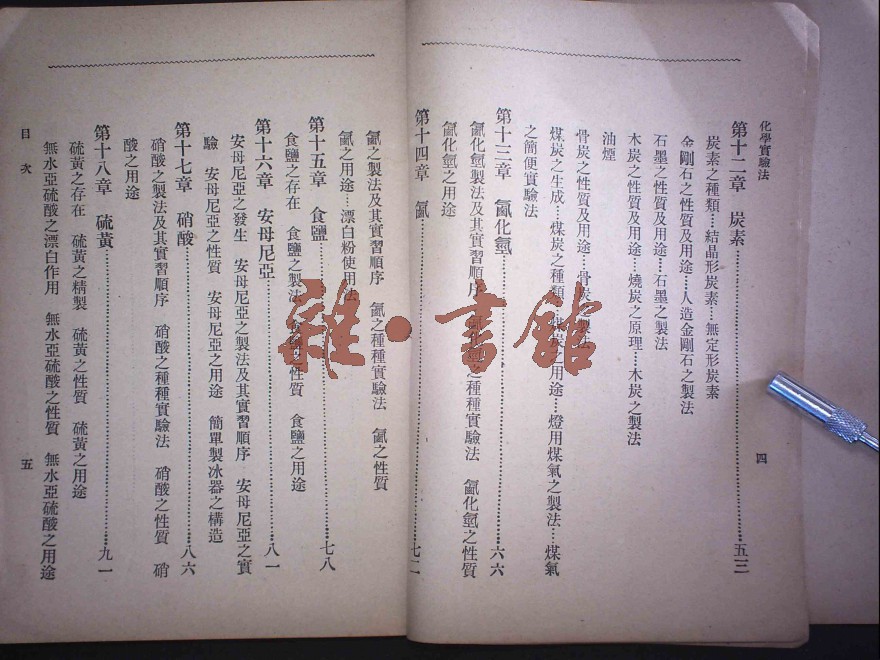 化學實驗法
四
第十二章 炭素……五三
炭素之種類…結晶形炭素…無定形炭素
金剛石之性質及用途…人造金剛石之製法
石墨之性質及用途…石墨之製法
木炭之性質及用途…燒炭之原理…木炭之製法
油煙
骨炭之性質及用途…骨炭之製法
煤炭之生成…煤炭之種類…煤炭之用途…燈用煤氣之製法…煤氣
之簡便實驗法
第十三章 氯化氫……六六
氯化氫製法及其實習順序 氯化氫之種種實驗法 氯化氫之性質
氯化氫之用途
第十四章 氯……七二
氯之製法及其實習順序 氯之種種實驗法 氯之性質
氯之用途…漂白粉使用法
第十五章 食鹽……七八
食鹽之存在 食鹽之製法 食鹽之性質 食鹽之用途
第十六章 安母尼亞……八一
安母尼亞之發生 安母尼亞之製法及其實習順序 安母尼亞之實
驗 安母尼亞之性質 安母尼亞之用途 簡單製冰器之構造
第十七章 硝酸……八六
硝酸之製法及其實習順序 硝酸之種種實驗法 硝酸之性質 硝
酸之用途
第十八章 硫黃……九一
硫黃之存在 硫黃之精製 硫黃之性質 硫黃之用途
無水亞硫酸之漂白作用 無水亞硫酸之性質 無水亞硫酸之用途
目次
五
雜·書館